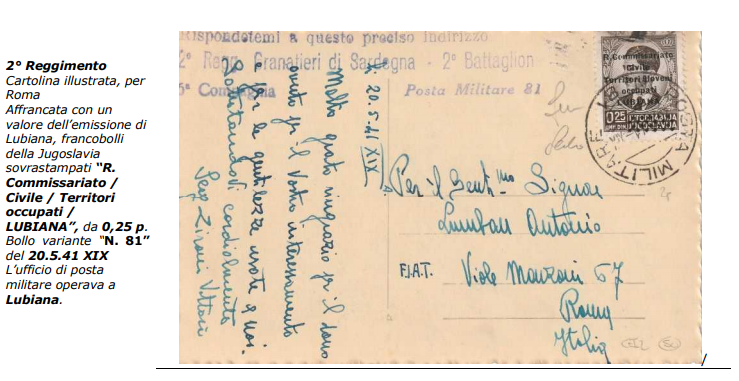 2° Reggimento
Cartolina illustrata, per
Roma
Affrancata con un
valore dell'emissione di
Lubiana, francobolli
della Jugoslavia
sovrastampati "R.
Commissariato /
Civile / Territori
occupati /
LUBIANA", da 0,25 p.
Bollo variante "N. 81"
del 20.5.41 XIX
L'ufficio di posta
militare operava a
Lubiana.
Rispondetemi a questo preciso indirizzo
2° Regg. Granatieri di Sardegna - 2° Battaglion
5ª Compagnia Posta Militare 81
20-5-41 XIX
Molto grato ringrazio per il dono
avuto per il Vostro interessamento
e per la gentilezza usata a noi.
Salutandovi cordialmente
Serg. Vittorio
R. Commissariato
Civile
Territori Sloveni
occupati
LUBIANA
0.25
JUGOSLAVIJA
POSTA MILITARE
Per il Gent.mo Signor
Antonio
F.I.A.T.
Viale Manzoni 67
Roma
Italia
/